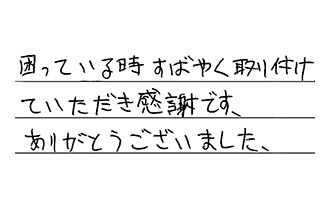 困っている時すばやく取り付け
ていただき感謝です、
ありがとうございました、